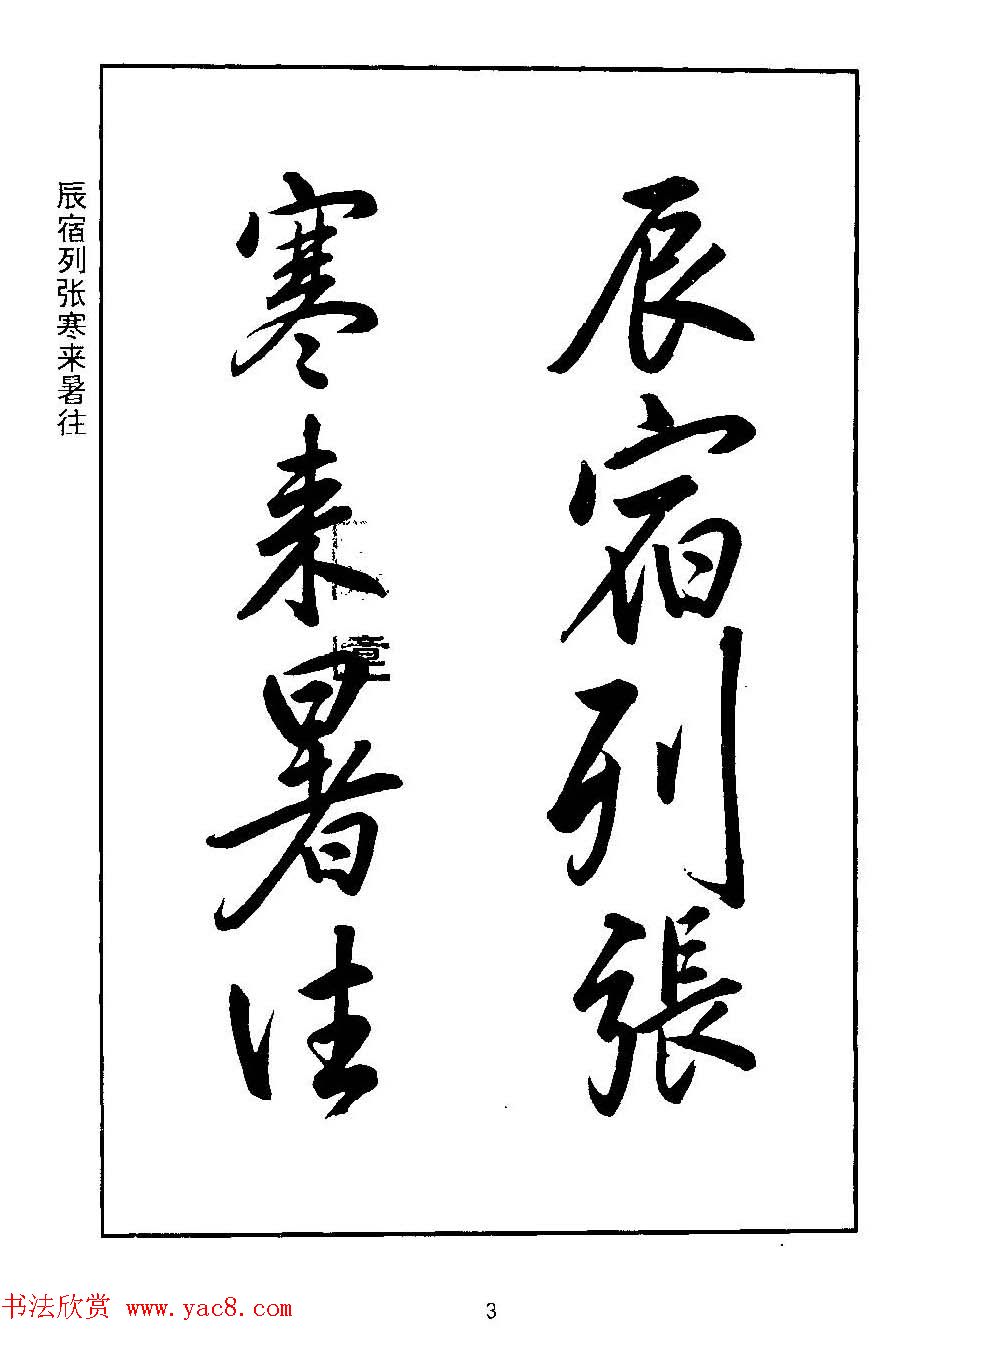 辰宿列張
寒来暑往
辰宿列张寒来暑往
书法欣赏 www.yac8.com
3